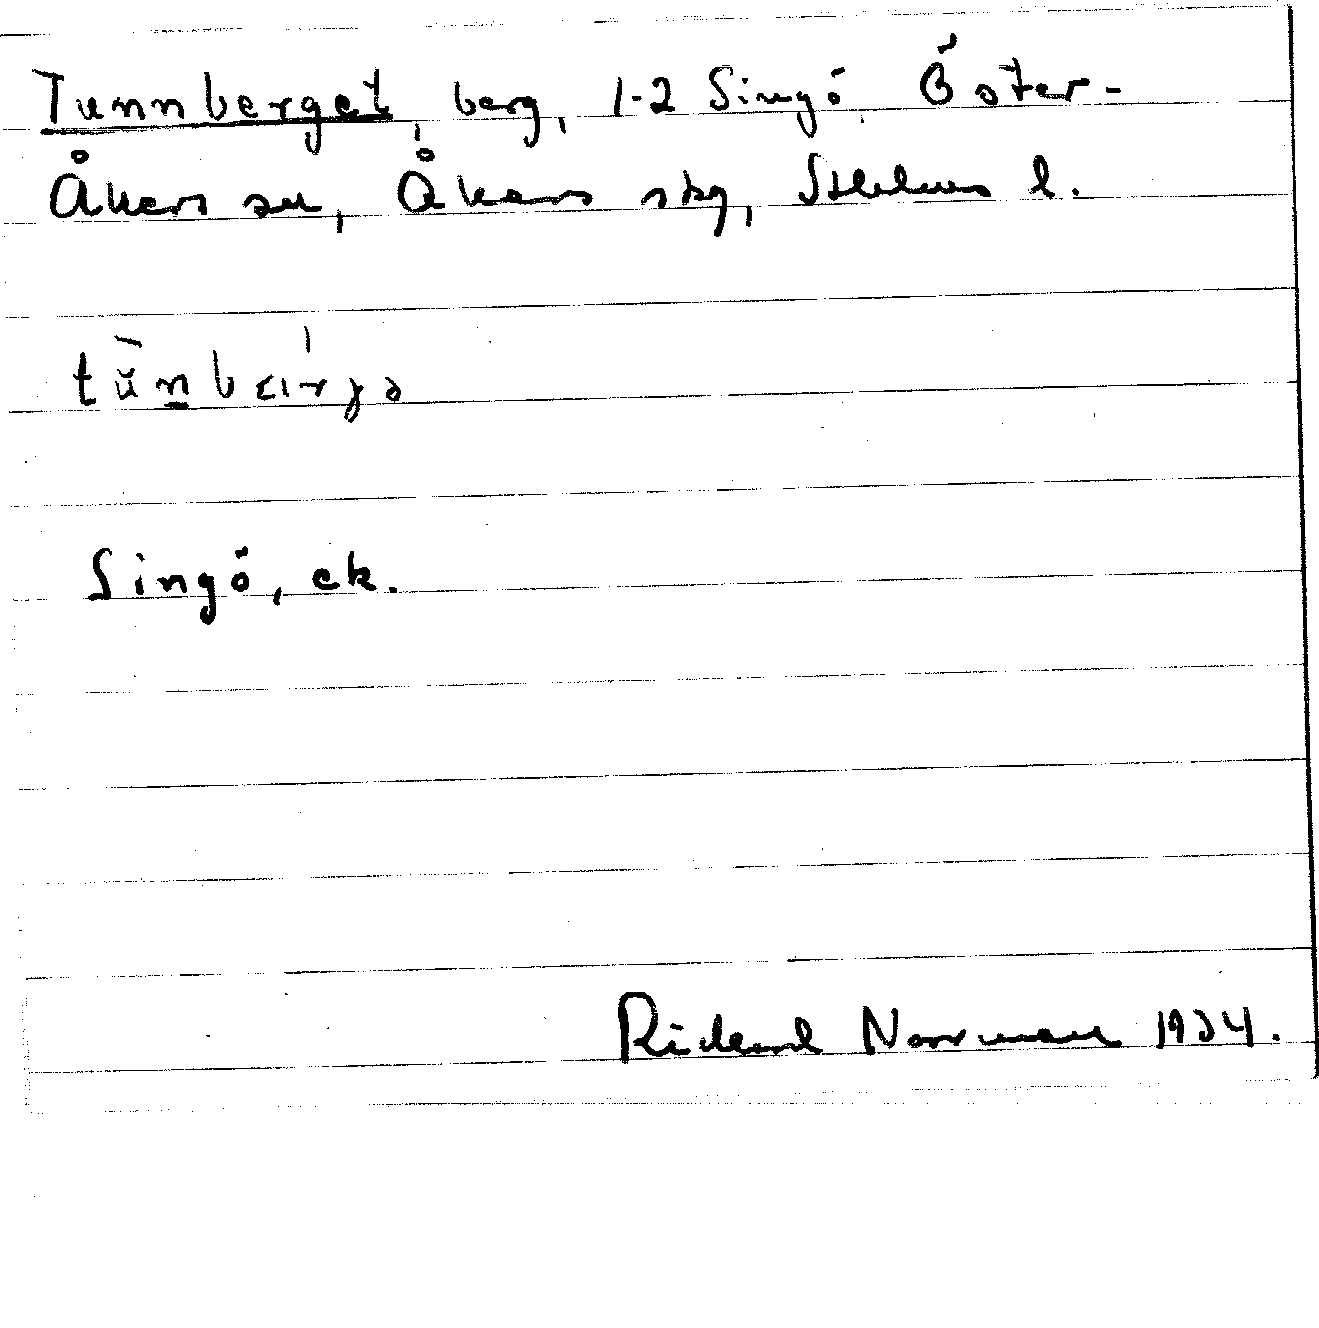 Tunnberget, berg, 1-2 Singö Öster-
Åkers sn, Åkers skg, Sthlms l.
Singö, ek.
Rickard Norrman 1934.